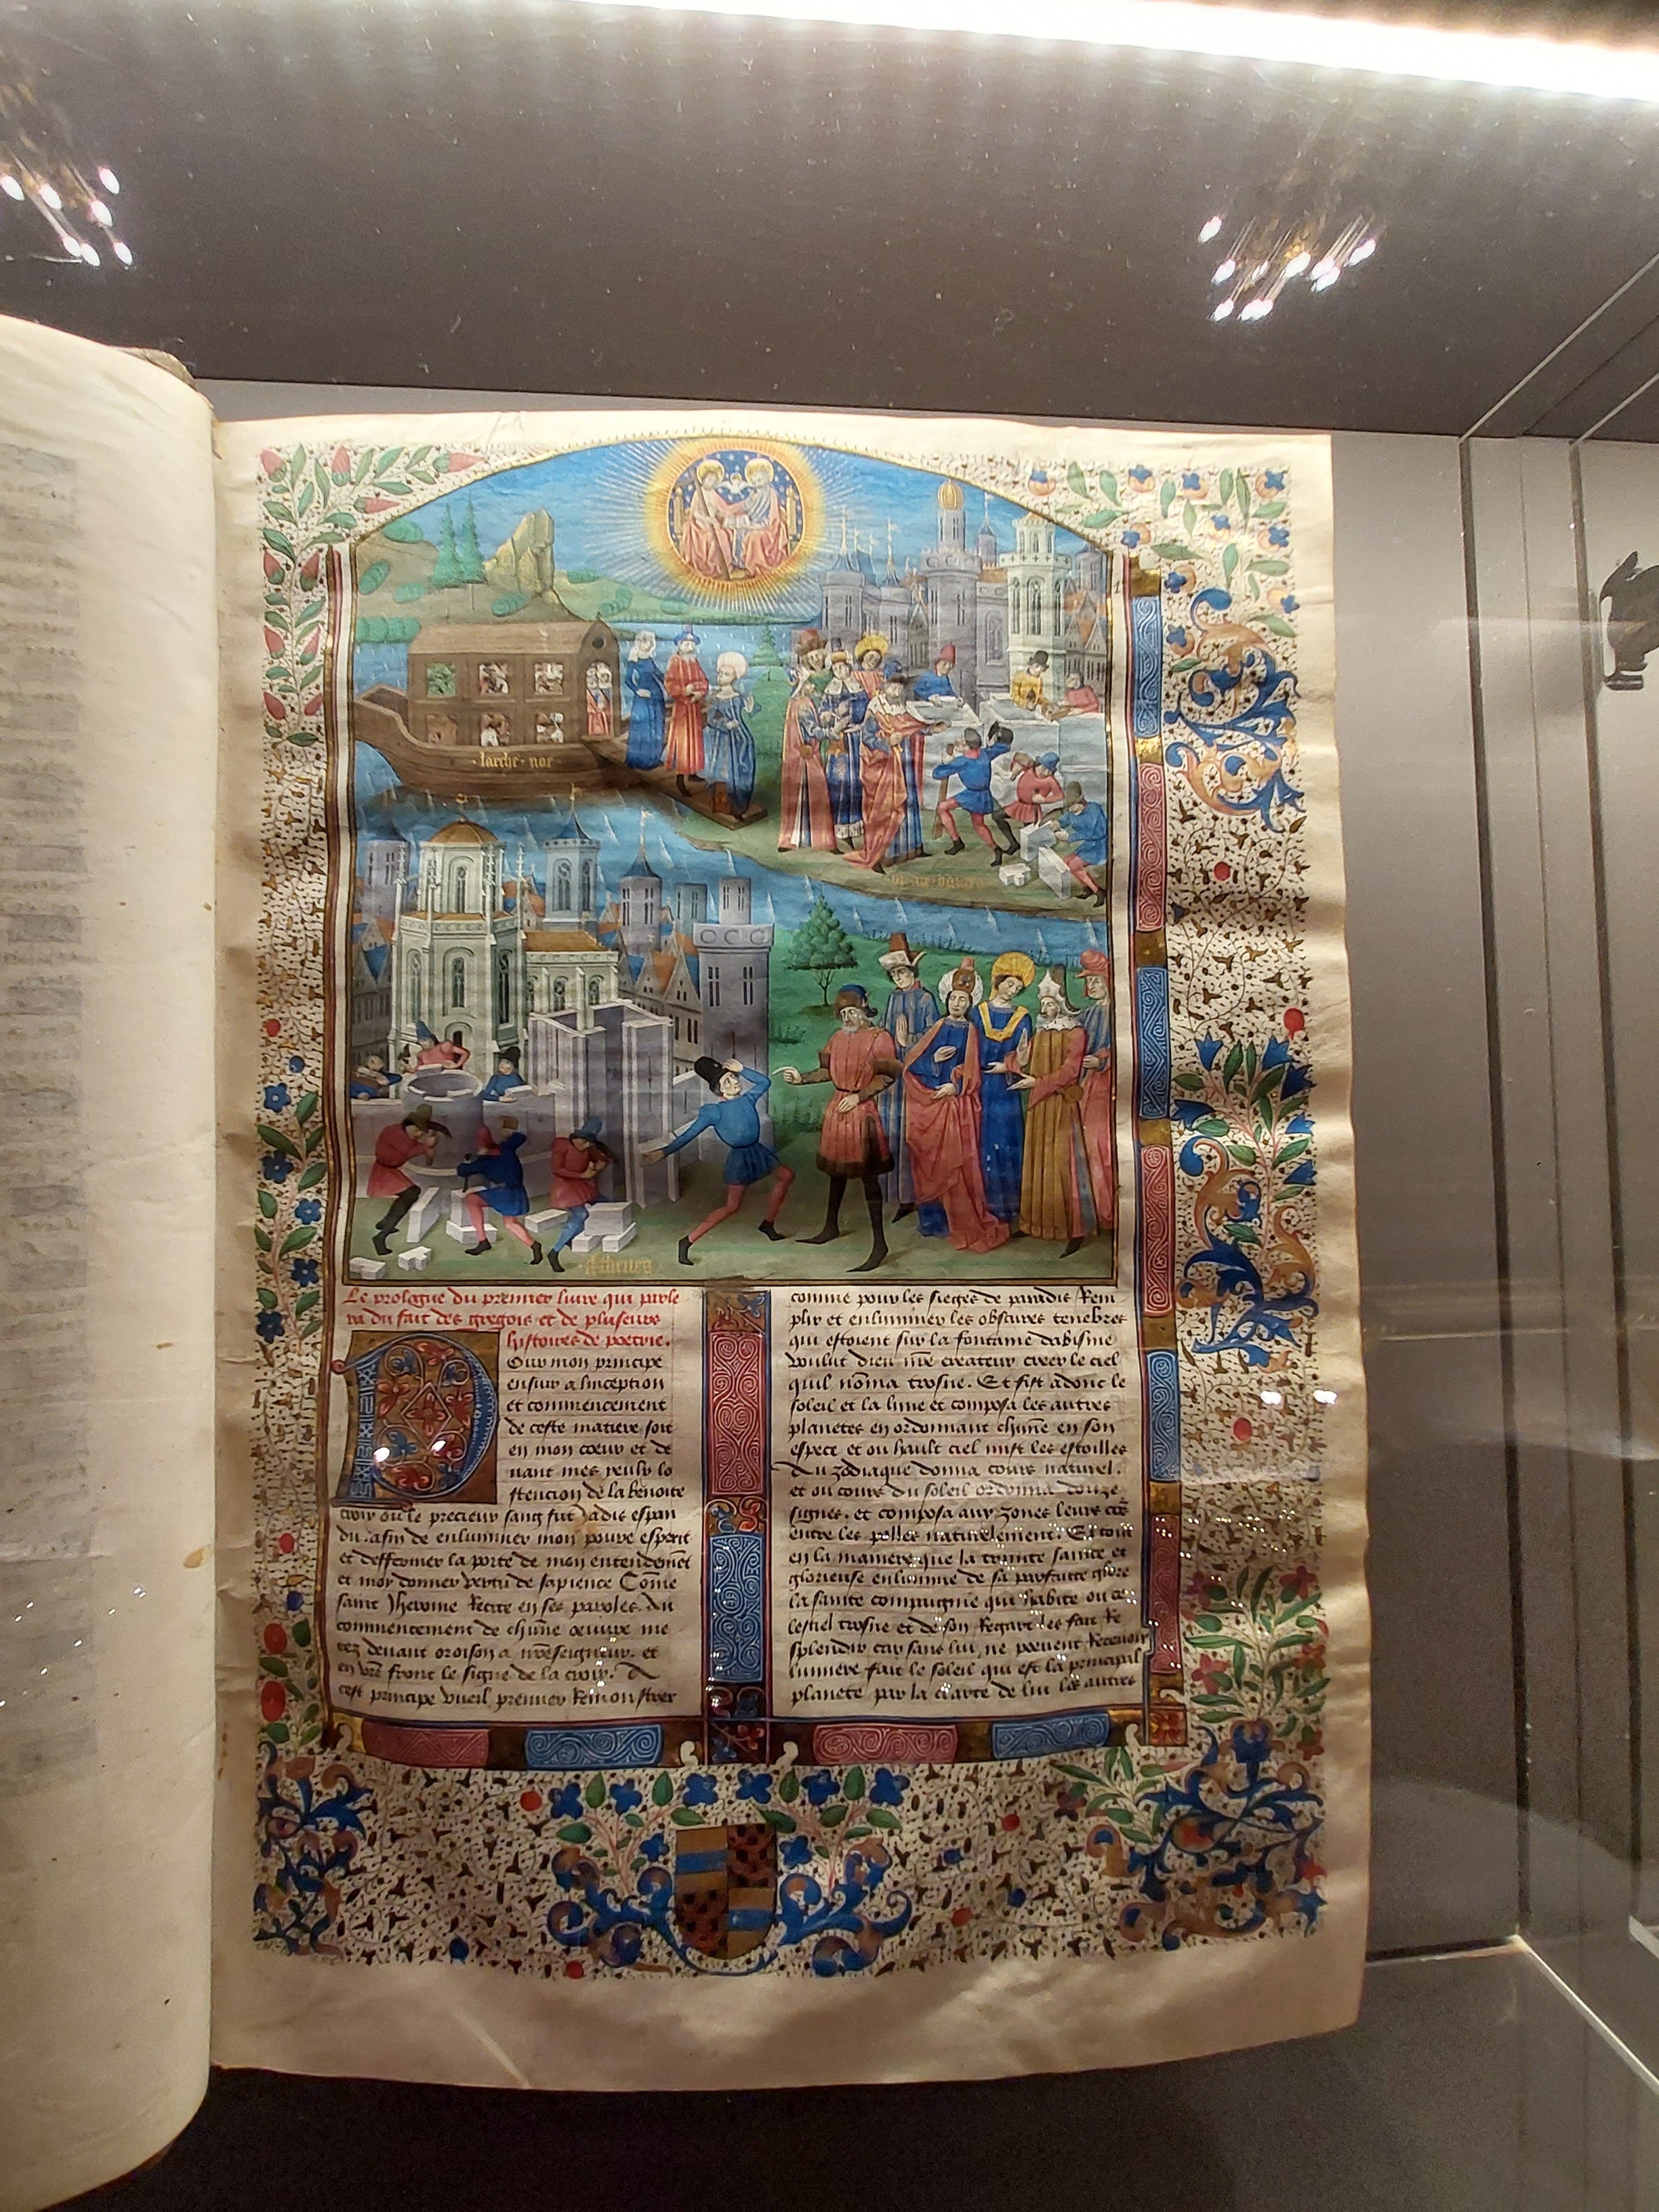 larche noe
Athenes
Le prologue du premier livre qui parle
ra du fait des gregois et de pluseurs
histoires de poetrie.
Our mon principe
ensuir a linception
et commencement
de ceste matiere soit
en mon coeur et de
vant mes yeulx lo
stencion de la benoite
croix ou le precieux sang fut Jadis espan
du. afin de enluminer mon povre esperit
et deffermer la porte de mon entendemẽt
et moy donner vertu de sapience Cõme
saint Jherome Recite en ses paroles. Au
commencement de chũne oeuvre me
tez devant oroison a nr̃eseigneur. et
en vr̃e front le signe de la croix. A
cest principe vueil premier Remonstrer
comme pour les sieges de paradis Rem
plir et enluminer les obscures tenebres
qui estoient sur la fontaine dabisme
voulut dieu nr̃e createur creer le ciel
quil nõma trosne. Et fist adonc le
soleil et la lune et composa les autres
planetes en ordonnant chũne en son
espece et ou hault ciel mist les estoilles
Au zodiaque donna cours naturel.
et ou cours du soleil ordonna douze
signes. et composa aux zones leurs
entre les polles naturelement. Et tout
en la maniere que la trinite sainte et
glorieuse enlumine de sa parfaitte gloire
la sainte compaignie qui habite ou ce
lestiel trosne et de son Regart les fait Re
splendir car sans lui ne peuent Recevoir
lumiere fait le soleil qui est la principal
planete par la clarte de lui les autres